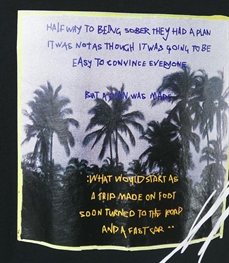 HALFWAY TO BEING SOBER THEY HAD A PLAN
IT WAS NOT AS THOUGH IT WAS GOING TO BE
EASY TO CONVINCE EVERYONE
BUT A PLAN WAS MADE
:WHAT WOULD START AS
A TRIP MADE ON FOOT
SOON TURNED TO THE ROAD
AND A FAST CAR ..